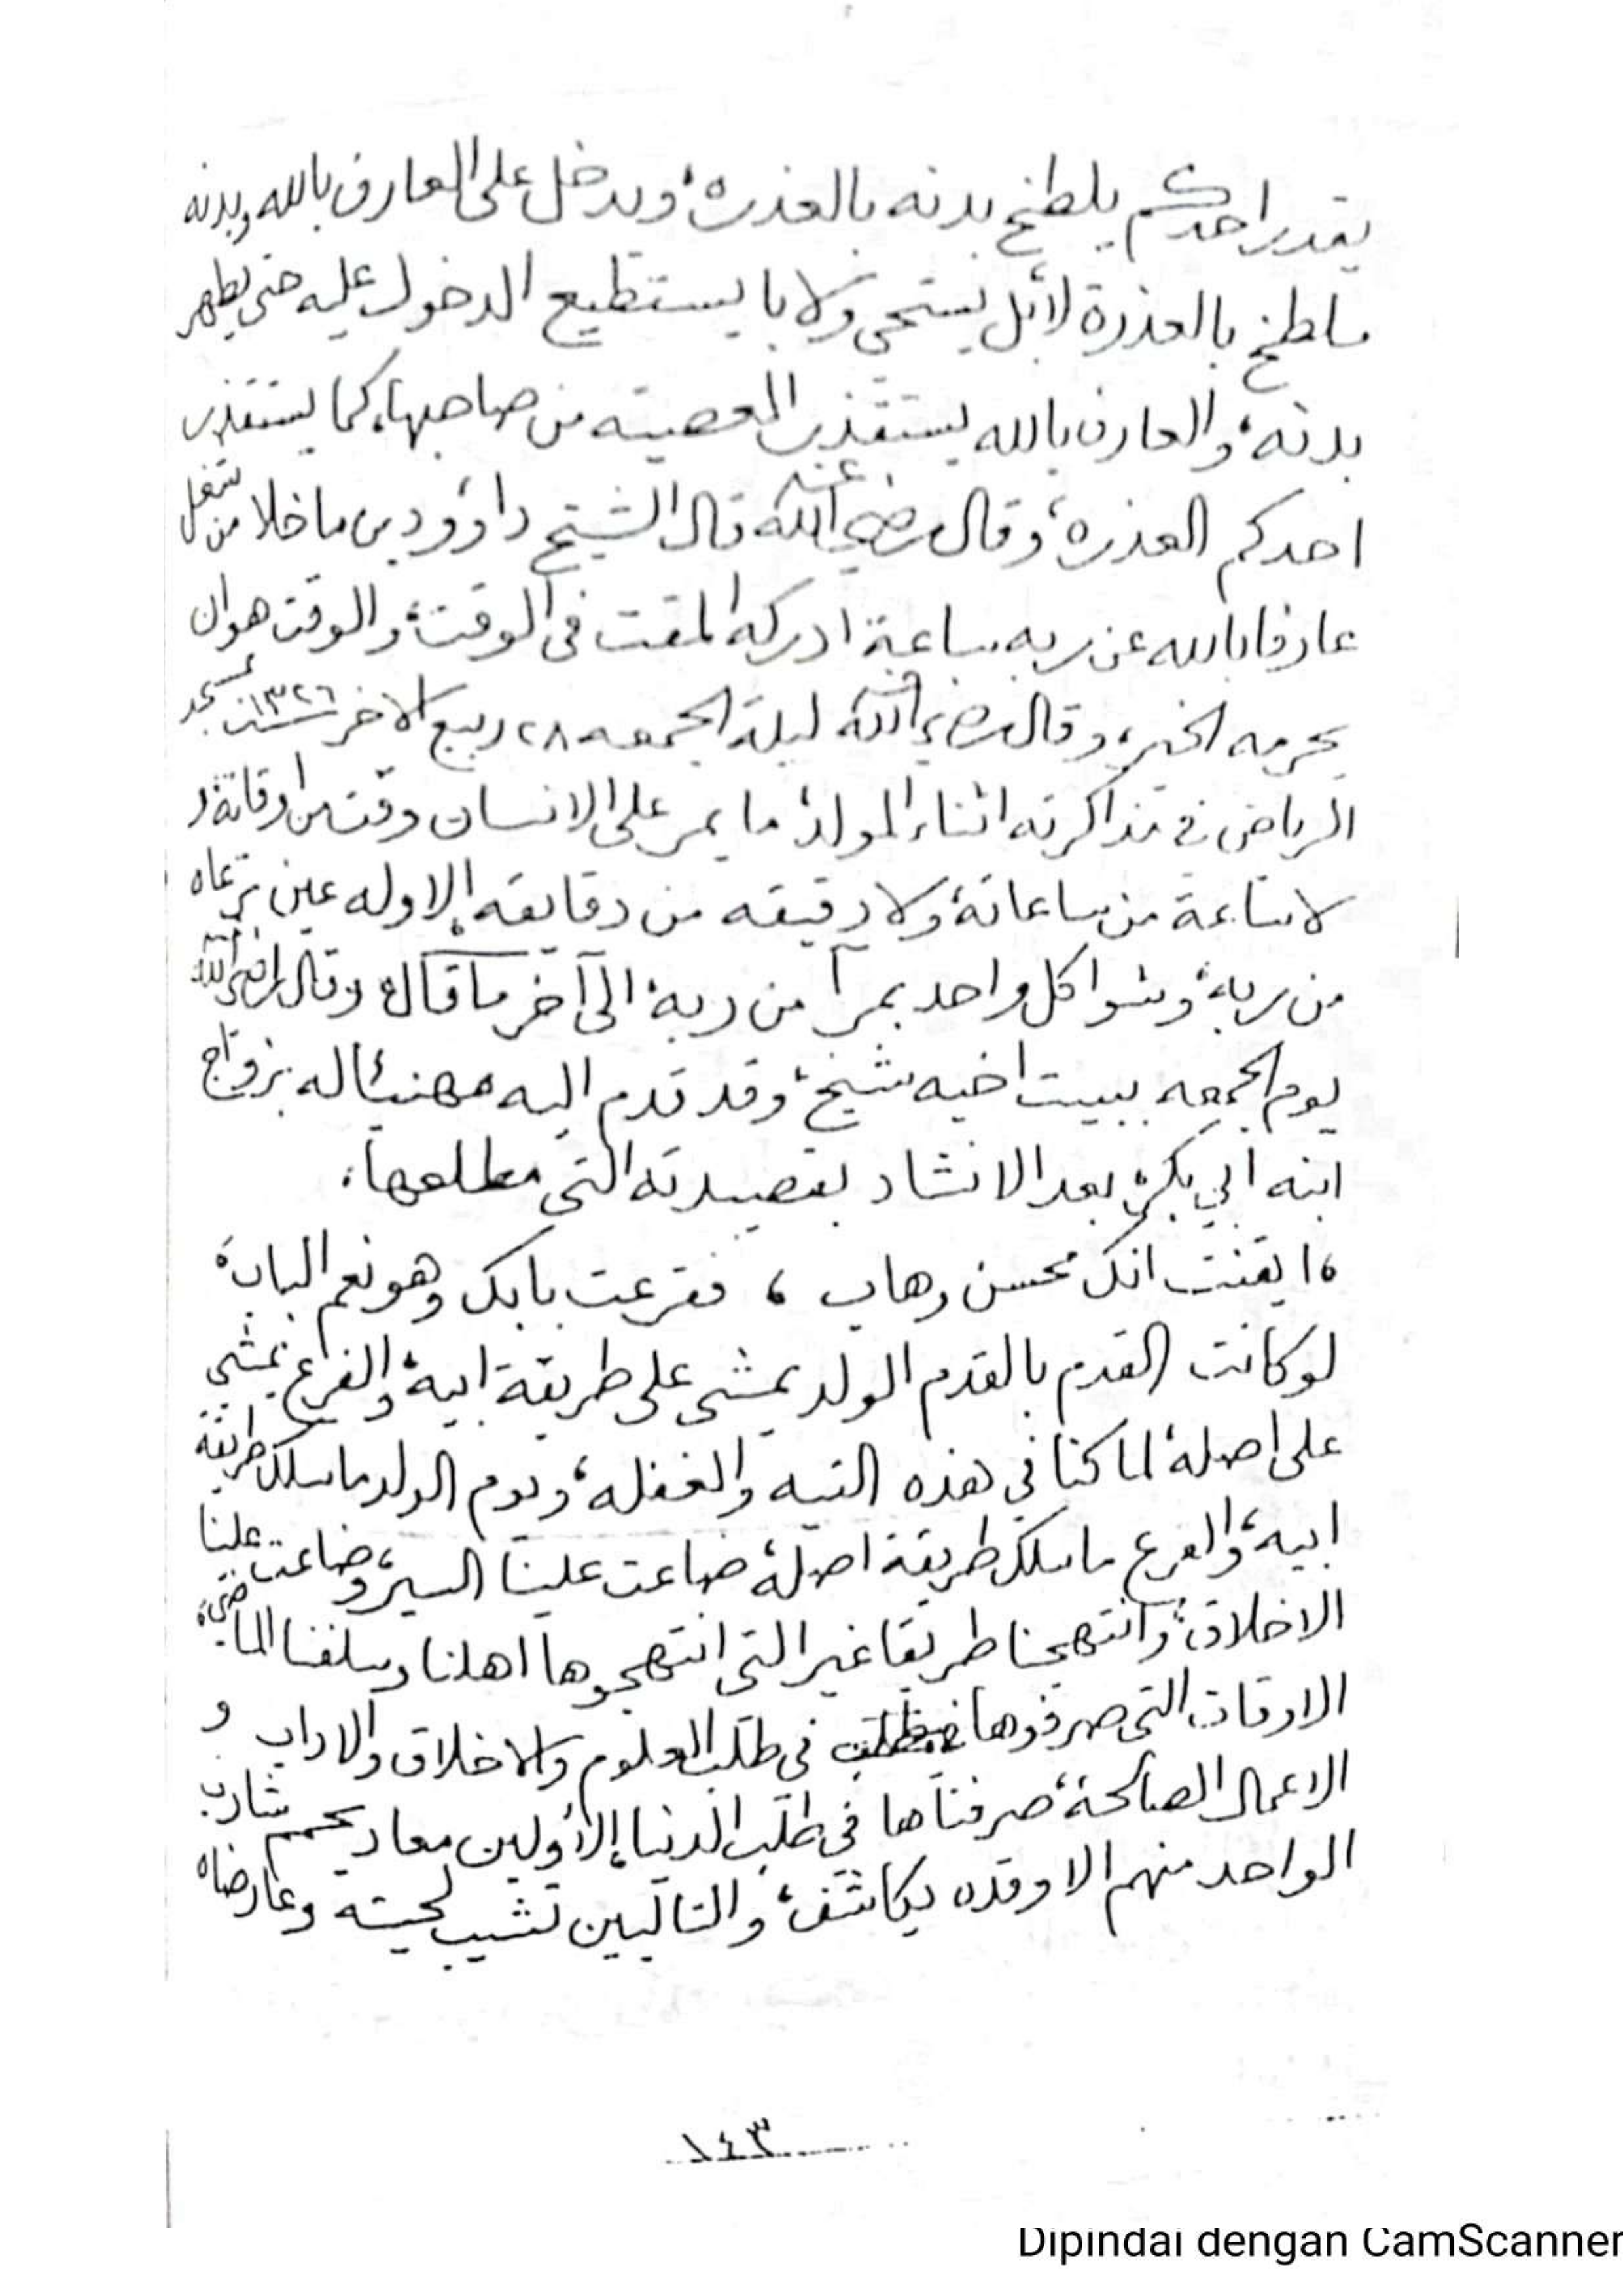 يقدر احدكم يلطخ بدنه بالعذره، ويدخل على العارف بالله وبدنه
ملطخ بالعذرة لا، بل يستحي ولا با يستطيع الدخول عليه حتى يطهر
بدنه، والعارف بالله يستقذر المعصيته من صاحبها، كما يستقذر
احدكم العذره، وقال رضي الله عنه قال الشيخ داؤود بن ماخلا من شغل
عارفا بالله عن ربه ساعة ادركه المقت في الوقت، والوقت هو ان
يحرمه الخير، وقال رضي الله عنه ليلة الجمعه ٢٨ ربيع الاخر سنة ١٣٢٦ بمسجد
الرياض في مذاكرته اثناء المولد، ما يمر على الانسان وقت من اوقاته، و
لا ساعة من ساعاته، ولا دقيقه من دقايقه، إلا وله عين ترعاه
من ربه، وشوا كل واحد بمرآ من ربه، الى آخر ما قال، وقال رضي الله عنه
يوم الجمعه ببيت اخيه شيخ، وقد قدم اليه مهنئا له بزواج
ابنه ابي بكر، بعد الانشاد بقصيدته التي مطلعها:
، ايقنت انك محسن وهاب ، فقرعت بابك وهو نعم الباب،
لو كانت القدم بالقدم الولد يمشي على طريقة ابيه، والفرع يمشي
على اصله، لما كنا في هذه التيه والغفله، ويوم الولد ما سلك طريقة
ابيه، والفرع ما سلك طريقة اصله، ضاعت علينا السير، وضاعت علينا
الاخلاق، وانتهجنا طريقا غير التي انتهجوها اهلنا وسلفنا الماضي،
الاوقات التي صرفوها في طلب العلوم والاخلاق والاداب و
الاعمال الصالحة، صرفناها في طلب الدنيا، إلأولين معاد يحمم شارب
الواحد منهم الا وقده يكاشف، والتاليين تشيب لحيته وعارضاه
١٤٣
Dipindai dengan CamScanner